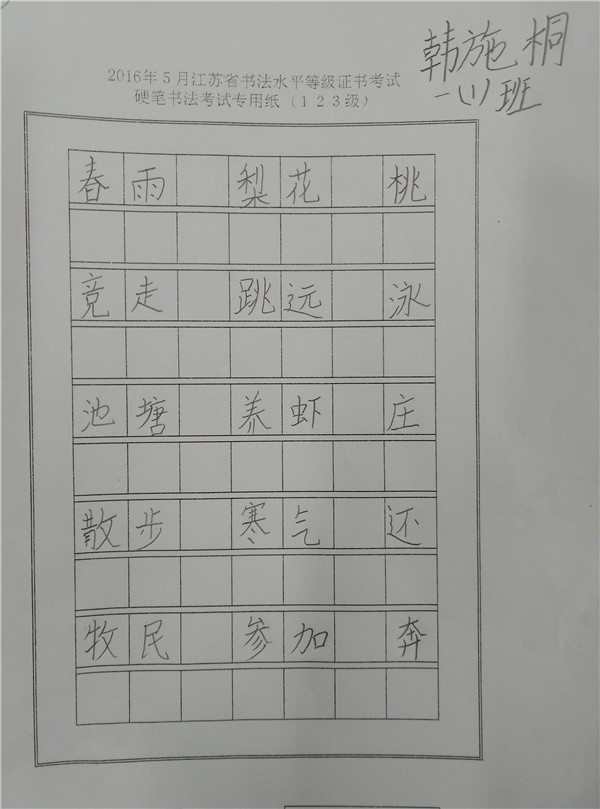 韩施桐
一(1)班
2016年5月江苏省书法水平等级证书考试
硬笔书法考试专用纸（123级）
春雨 梨花 桃
竞走 跳远 泳
池塘 养虾 庄
散步 寒气 还
牧民 参加 奔